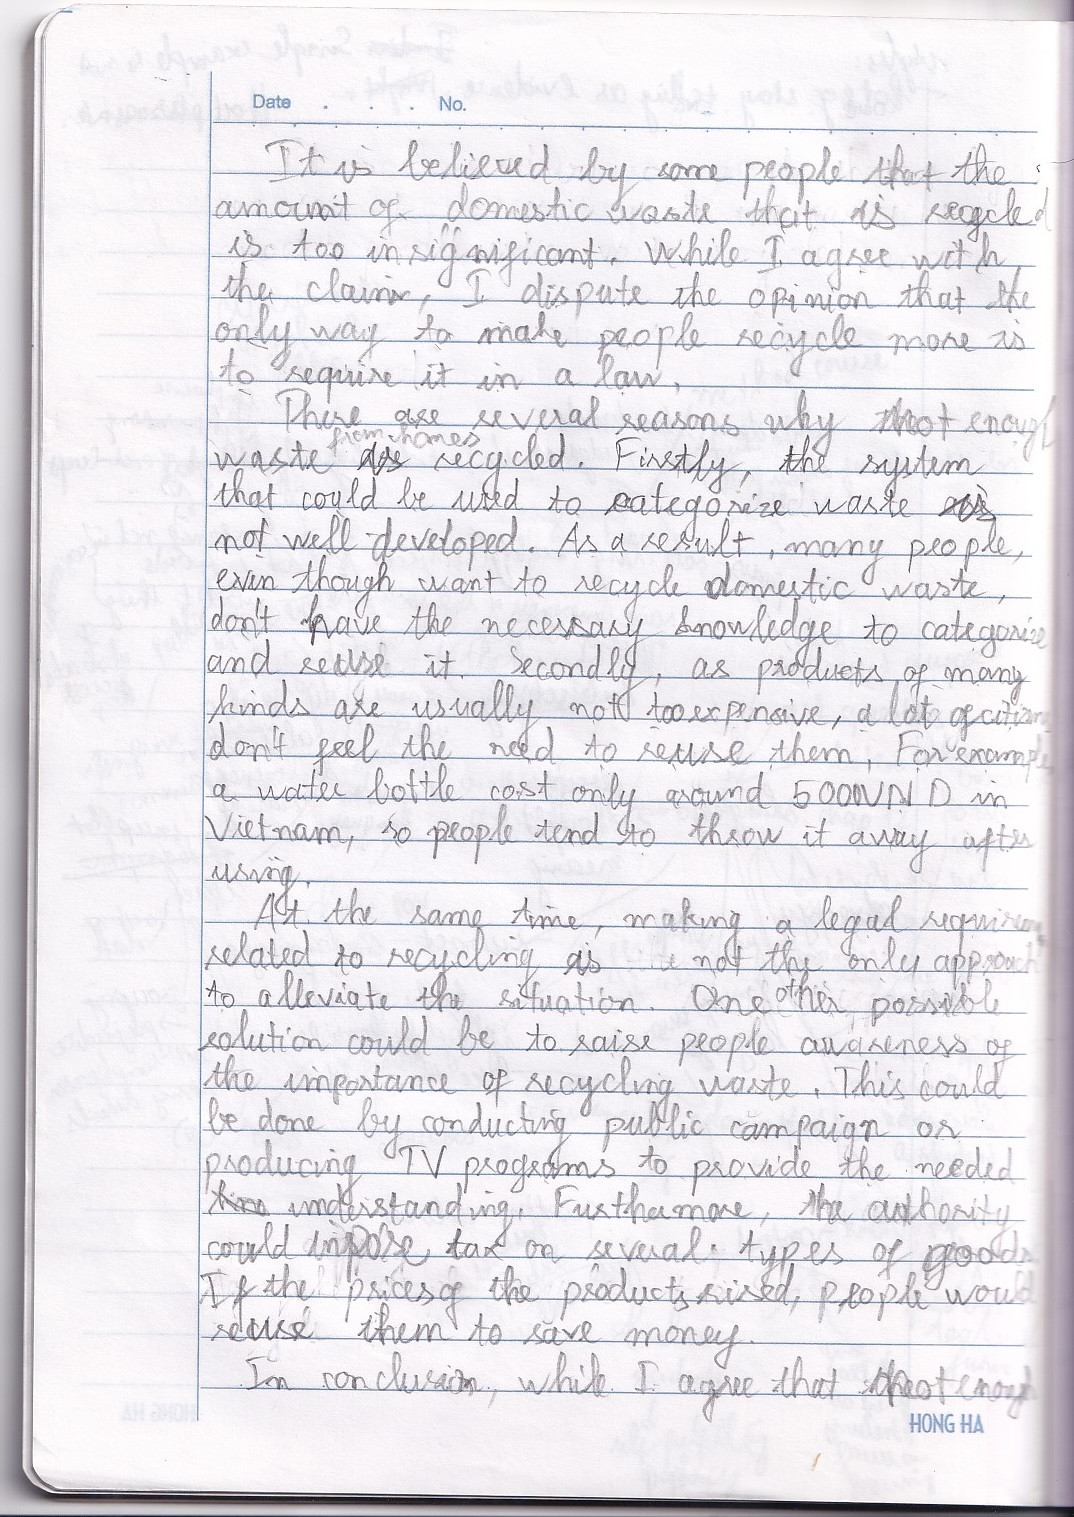 Date . . . . No.
It is believed by some people that the
amount of domestic waste that is recycled
is too insignificant. While I agree with
the claim, I dispute the opinion that the
only way to make people recycle more is
to require it in a law.
There are several reasons why not enough
from homes
waste is recycled. Firstly, the system
that could be used to categorize waste is
not well developed. As a result, many people,
even though want to recycle domestic waste,
don't have the necessary knowledge to categorize
and reuse it. Secondly, as products of many
kinds are usually not too expensive, a lot of citizens
don't feel the need to reuse them. For example
a water bottle cost only around 500VND in
Vietnam, so people tend to throw it away after
using.
At the same time, making a legal requirem
related to recycling is not the only approach
to alleviate the situation. One other possible
solution could be to raise people awareness of
the importance of recycling waste. This could
be done by conducting public campaign or
producing TV programs to provide the needed
understanding. Furthermore, the authority
could impose tax on several types of goods
If the prices of the products rised, people would
reuse them to save money.
In conclusion, while I agree that not enough
HONG HA